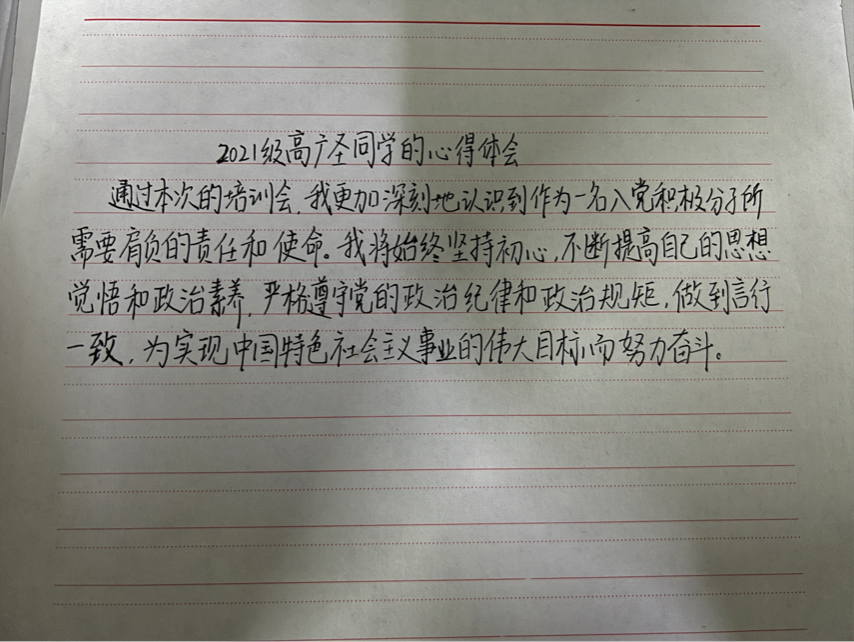 2021级高广圣同学的心得体会
通过本次的培训会，我更加深刻地认识到作为一名入党积极分子所
需要肩负的责任和使命。我将始终坚持初心，不断提高自己的思想
觉悟和政治素养，严格遵守党的政治纪律和政治规矩，做到言行
一致，为实现中国特色社会主义事业的伟大目标而努力奋斗。